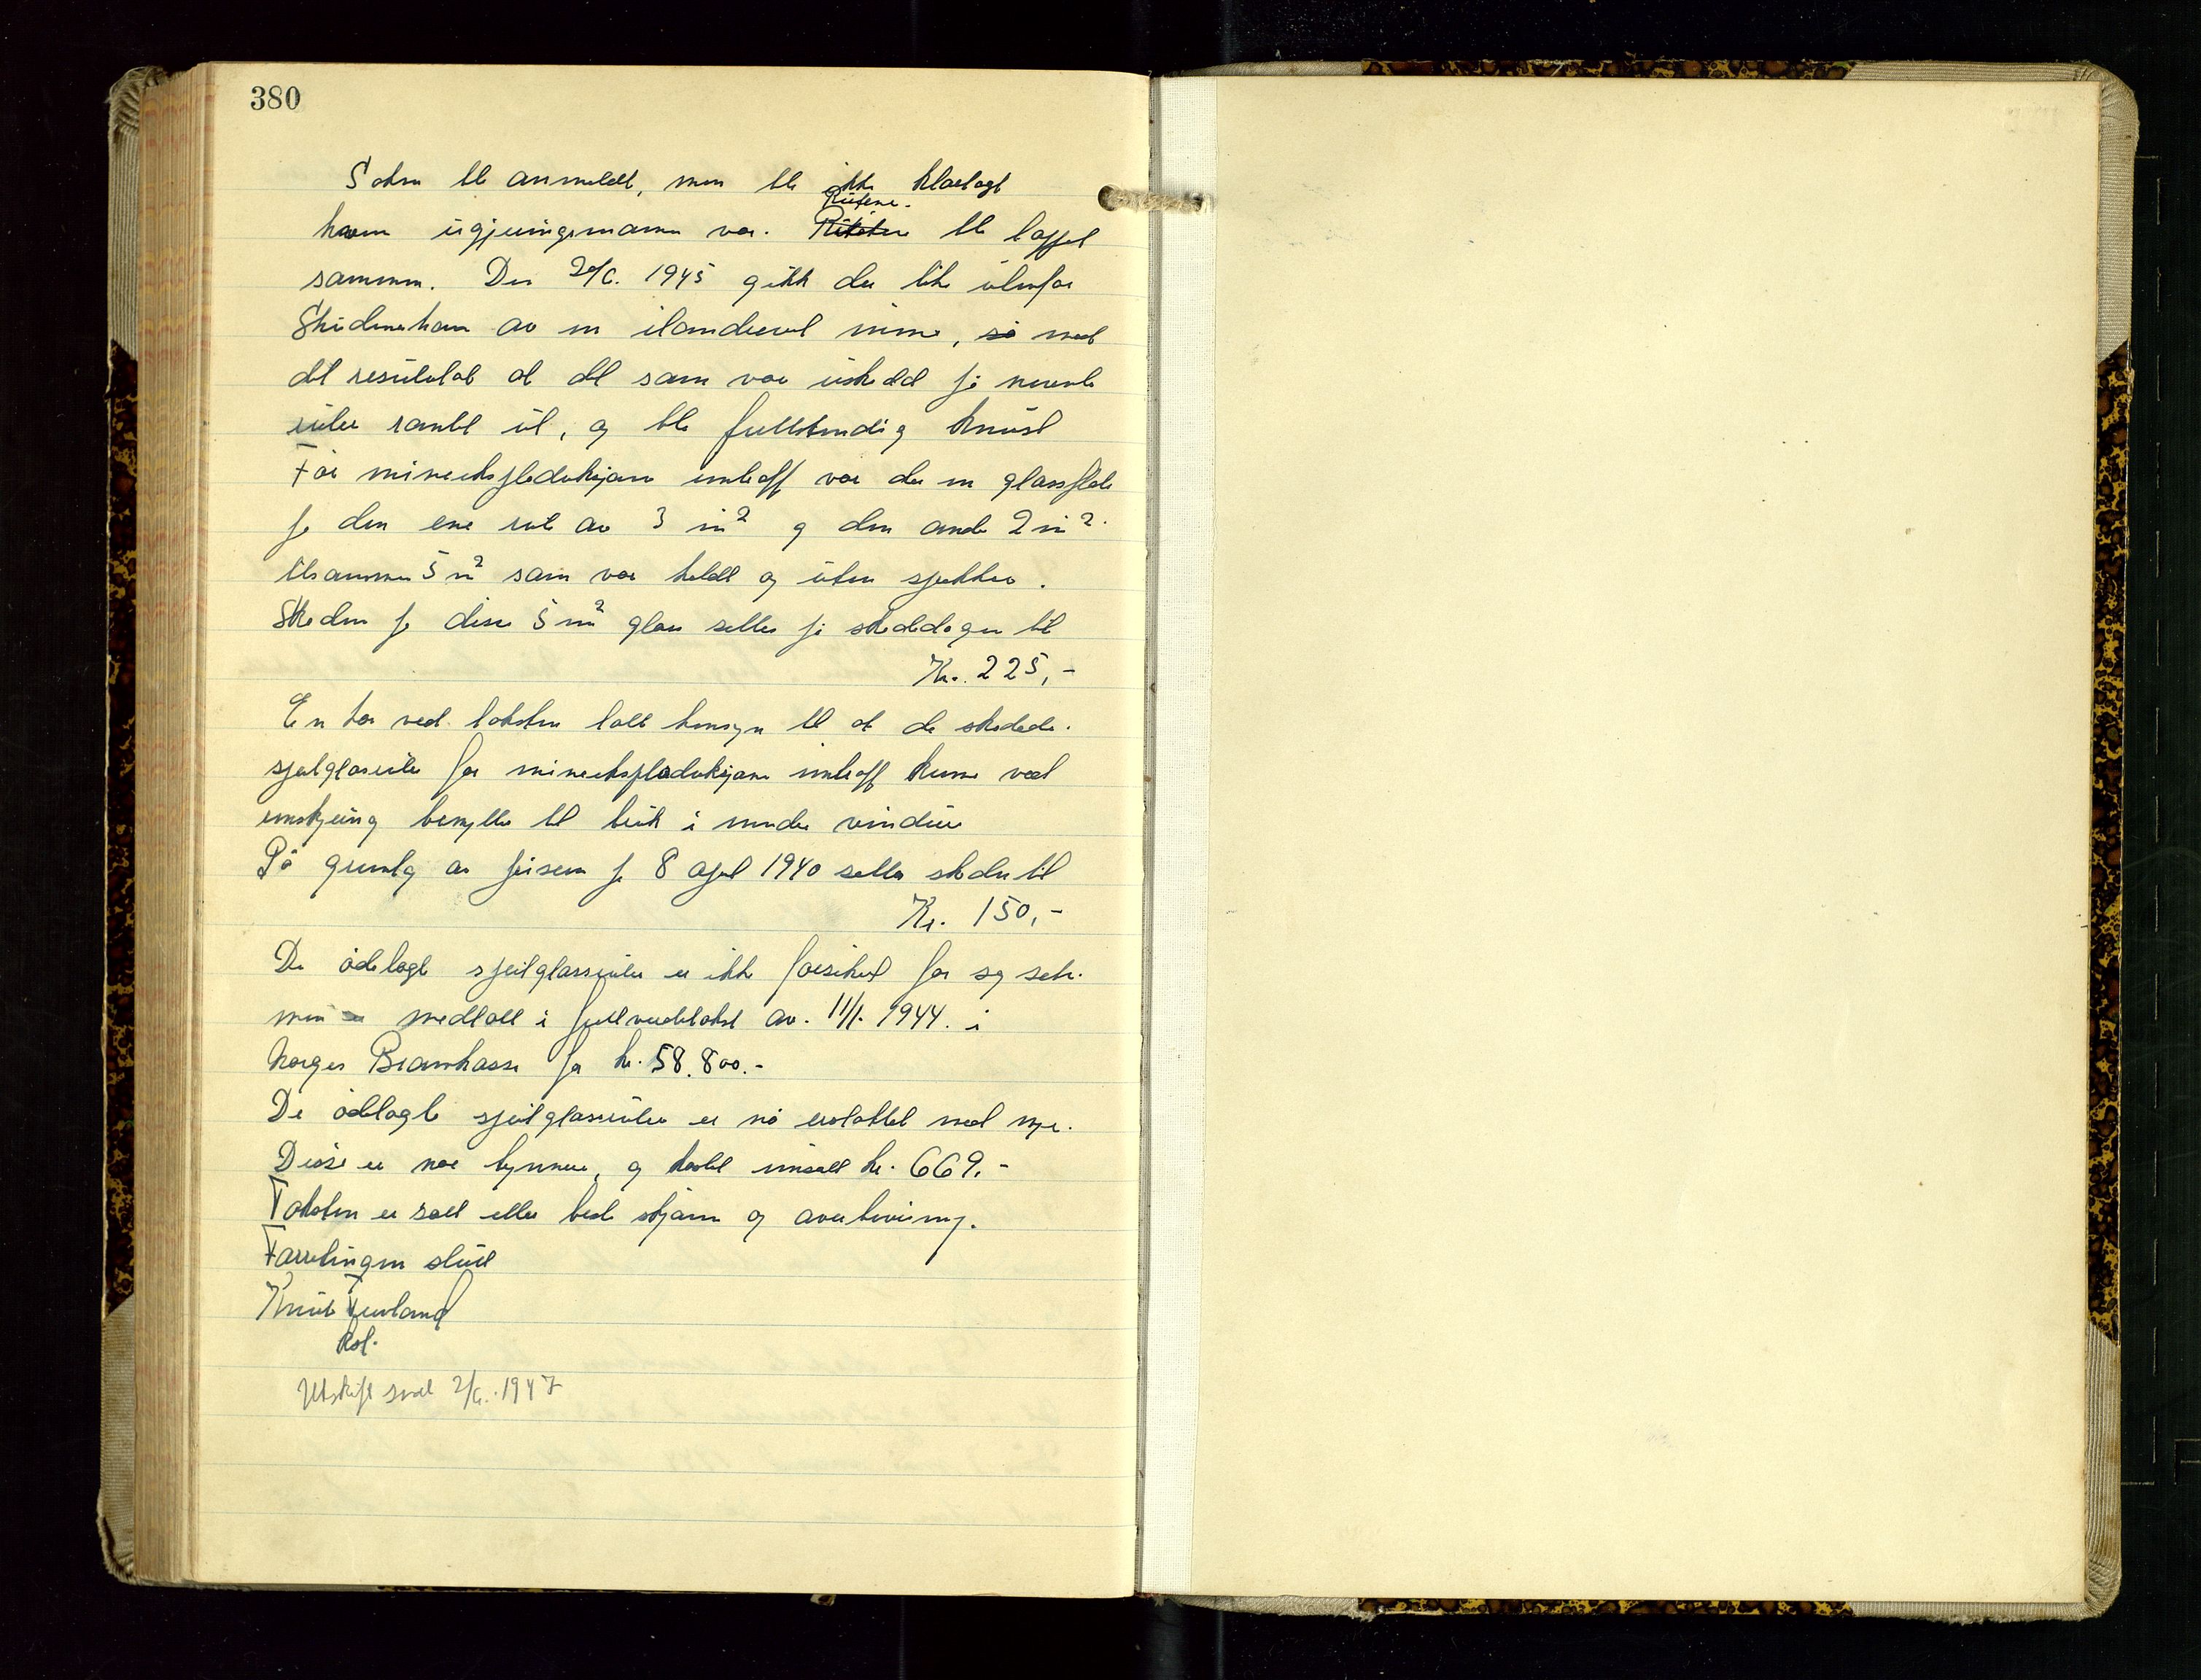 380
Saken ble anmeldt, men ble ikke klarlagt
Rutene.
hvem ugjerningsmannen var. ble lappet
sammen. Den 20/6. 1945 gikk der like utenfor
Skudeneshavn av en ilanddrevet mine, så med
det resultatat at det som var uskadd på nevnte
ruter ramlet ut, og ble fullstendig knust
Før mineeksplosjonen inntraff var der en glassflate
på den ene rute av 3 m² og den andre 2 m².
tilsammen 5 m² som var heldt og uten sprekker.
Skaden på disse 5 m² glass settes på skadedagen til
Kr. 225,-
En har ved taksten tatt hensyn til at de skadede.
speilglasruter før mineeksplosjonen inntraff kunne ved
omskjæring benyttes til bruk i mindre vinduer
På grunlag av prisene pr 8 april 1940 settes skaden til
Kr. 150,-
De ødelagte speilglassruter er ikke forsikret for seg selv.
men medtatt i fullverditakst av. 11/1. 1944. i
Norges Brannkasse for kr. 58.800.-
De ødelagte speilglassruter er nå erstattet med nye.
Disse er noe tynnere, og kostet innsatt kr. 669.-
Taksten er satt etter beste skjønn og overbevisning.
Forretningen slutt
Knut
Utskrift send 2/6. 1947